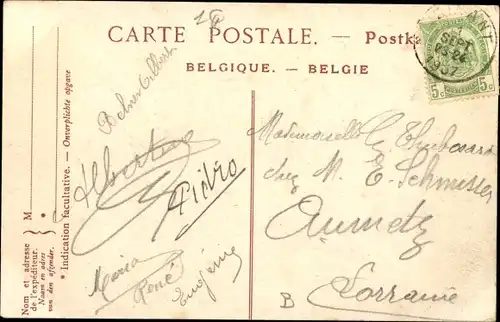 CARTE POSTALE. — Postka
BELGIQUE. — BELGIE
SEPT
1907
5c 5c
M
Nom et adresse
de l'expéditeur.
Naam en adres
van den afzender.
* Indication facultative. — Onverplichte opgave
Albertine
Piétro
Maria
René
Eugénie
Mademoiselle
chez M. E. Schmitter
Aumetz
Lorraine
B